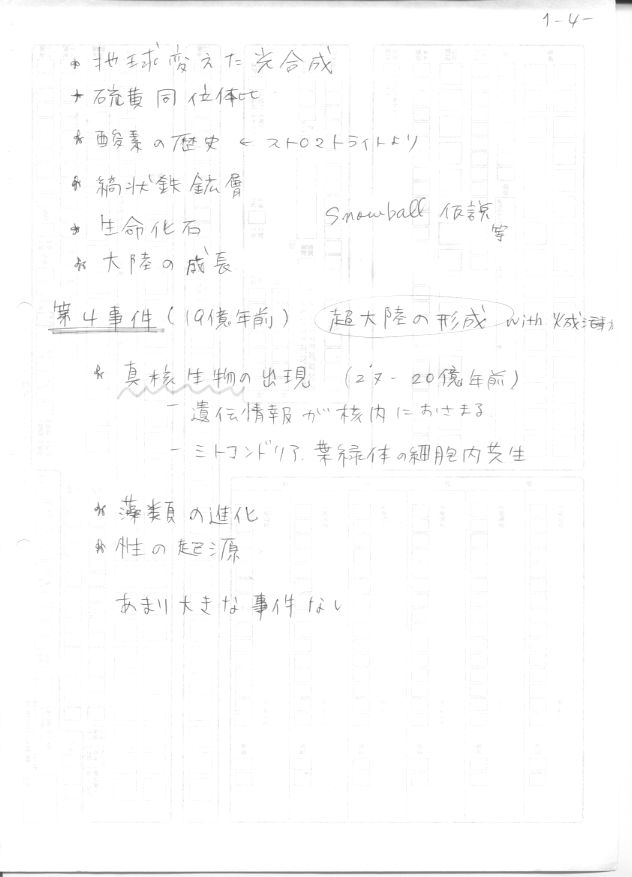 1-4-
* 地球変えた光合成
* 硫黄同位体比
* 酸素の歴史 ← ストロマトライトより
* 縞状鉄鉱層
* 生命化石 Snowball 仮説 等
* 大陸の成長
第4事件 (19億年前) 超大陸の形成 with 火成活動
* 真核生物の出現 (27-20億年前)
- 遺伝情報が核内におさまる
- ミトコンドリア、葉緑体の細胞内共生
* 藻類の進化
* 性の起源
あまり大きな事件なし